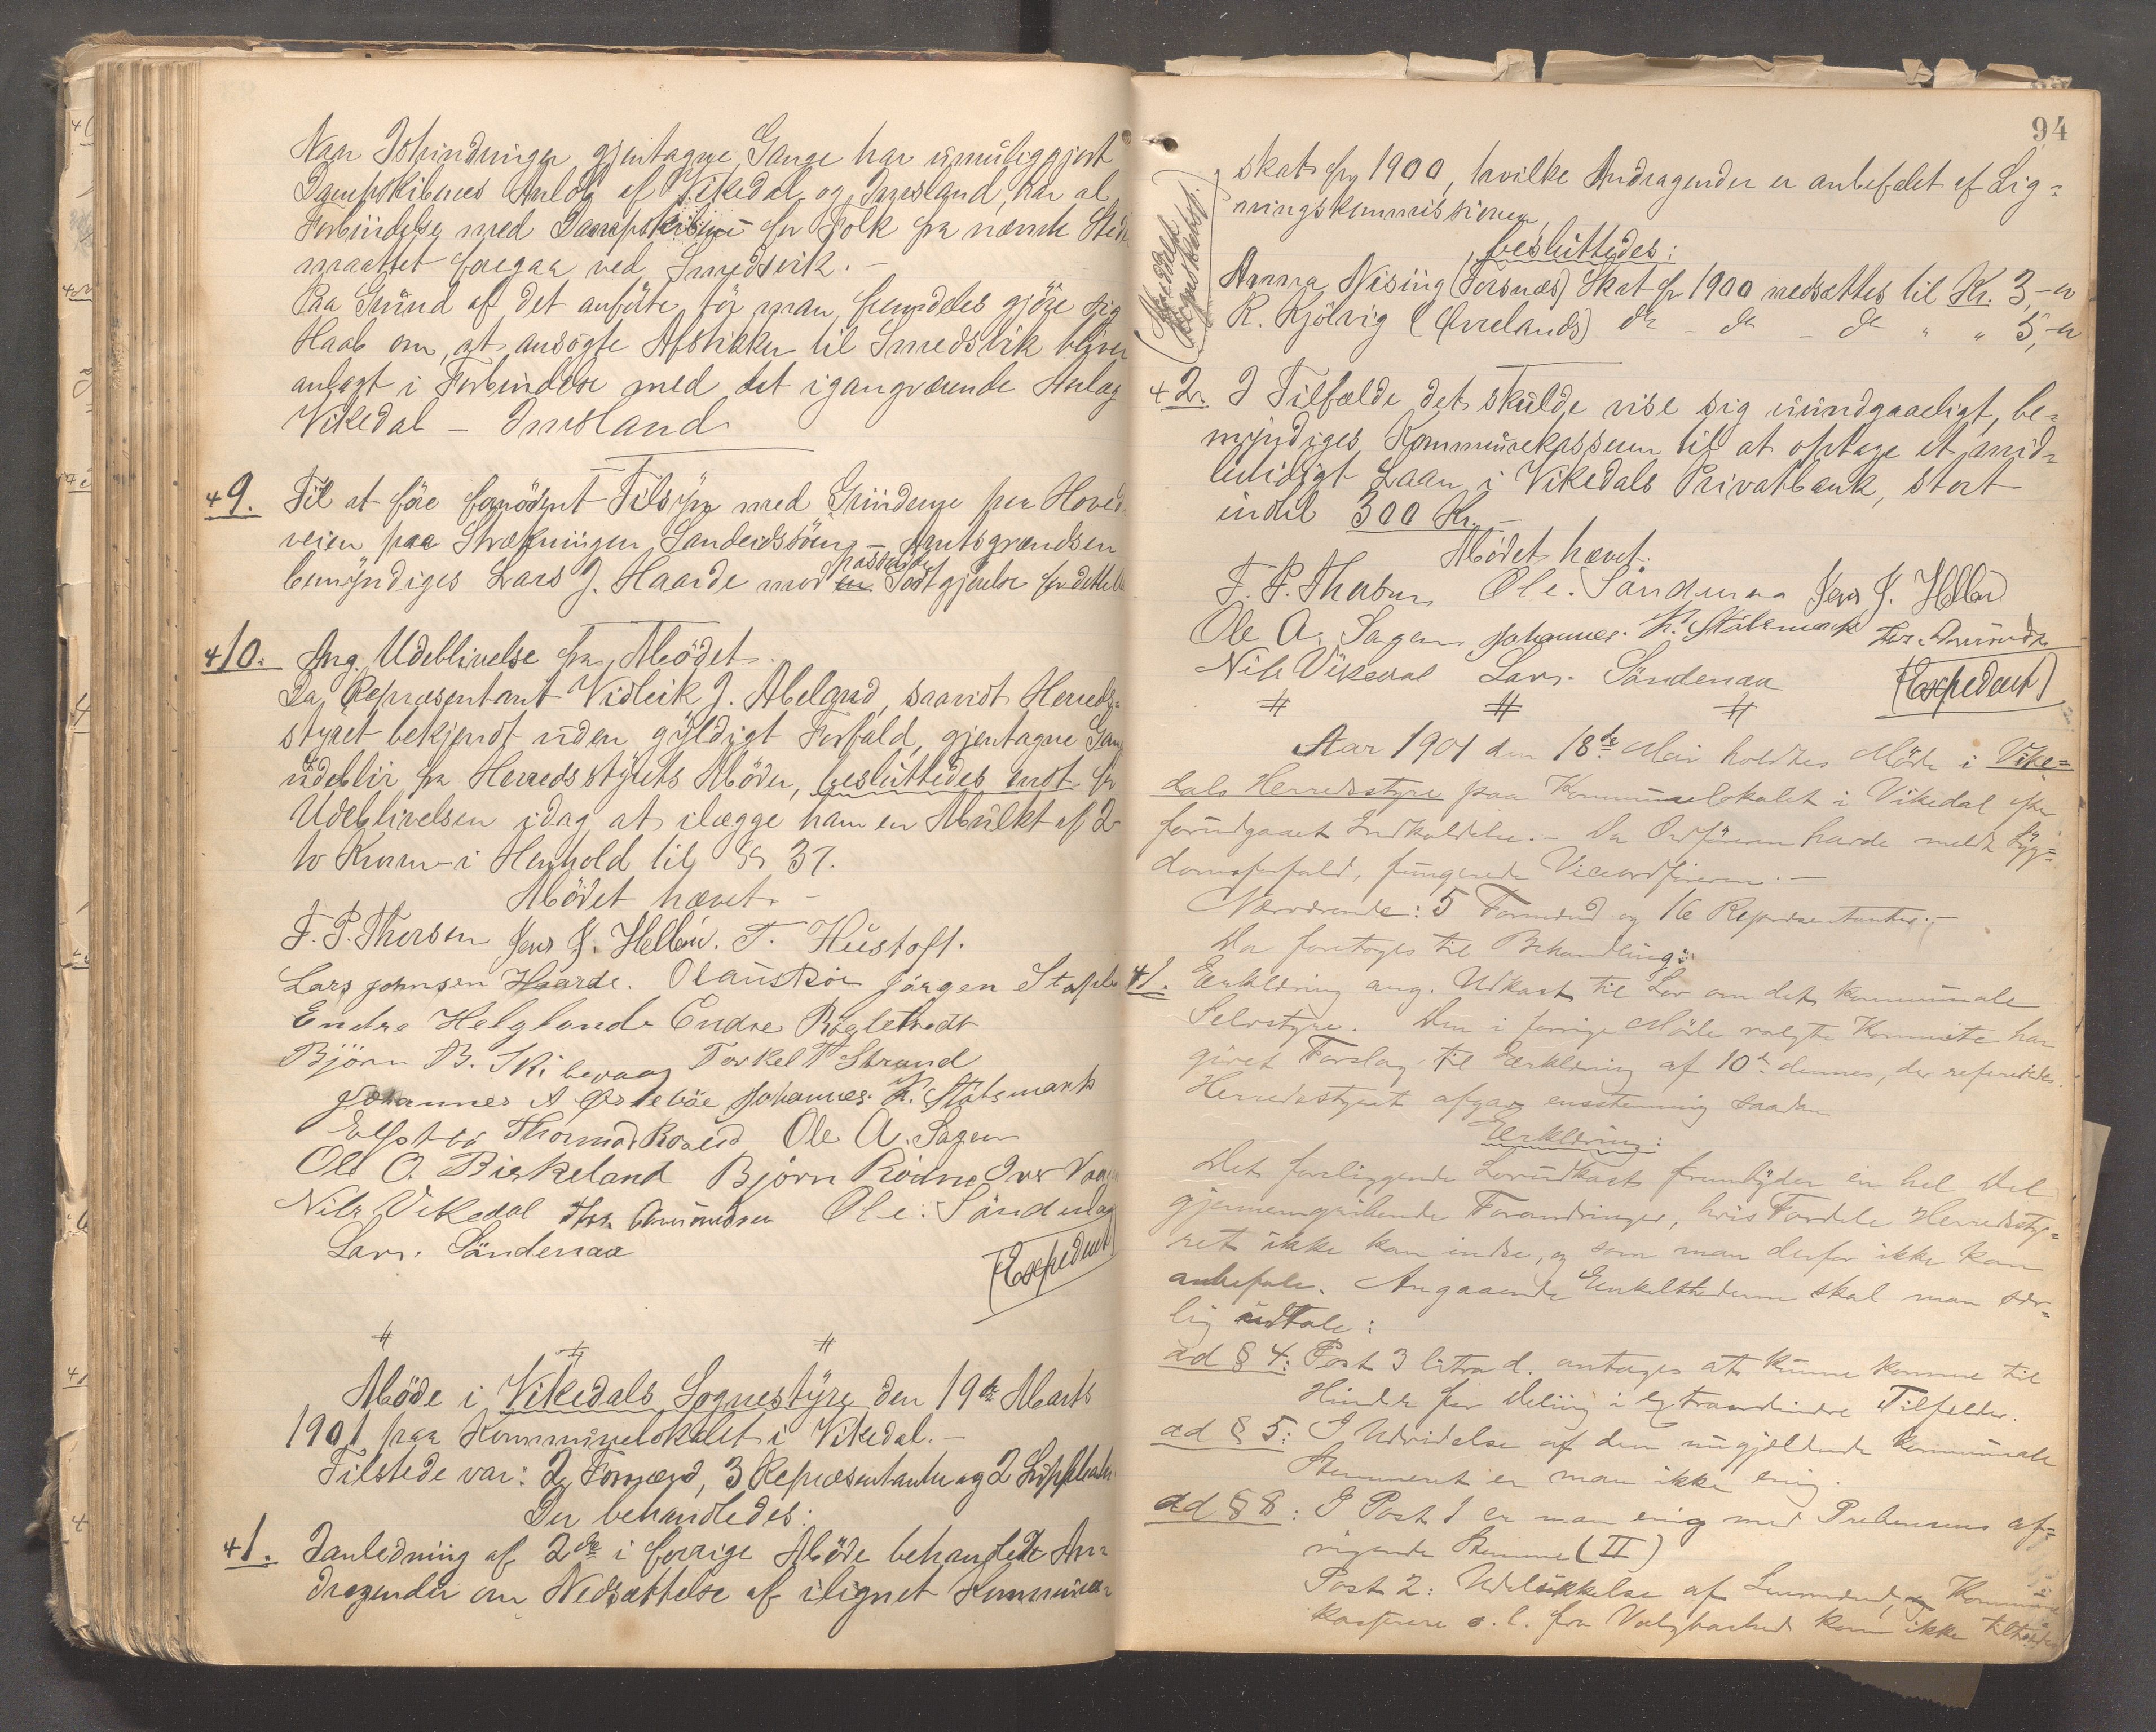 Naar Ishindringer gjentagne Gange har umuliggjort
Dampskibenes Anløb af Vikedal og Imsland, har al
Forbindelse med Dampskibene for Folk fra nævnte Steder
maattet foregaa ved Smedsvik. –
Paa Grund af det anførte tør man fremdeles gjøre sig
Haab om, at ansøgte Afstikker til Smedsvik bliver
anlagt i Forbindelse med det igangværende Anlæg
Vikedal – Imsland
+9. Til at føre fornødent Tilsyn med Grinderne paa Hoved-
veien paa Strækningen Sandeidsøren – Amtsgrændsen
bemyndiges Lars J. Haarde mod en passende Godtgjørelse for dette
+10. Ang. Udeblivelse fra Mødet.
Da Repræsentant Vidleik J. Abelgrud, saavidt Herreds-
styret bekjendt uden gyldigt Forfald, gjentagne Gange
udeblir fra Herredsstyrets Møder, besluttedes enst. for
Udeblivelsen idag at ilægge ham en Mulkt af 2
to Kroner i Henhold til § 37.
Mødet hævet. –
F. P. Thorsen Jens J. Helleni. T. Hustoft.
Lars Johnsen Haarde. Ola Auskøe Jørgen Stople
Endre Helgeland Endre Bøgletvedt
Bjørn B. Skibevaag Torkel T Strand
Johannes A Østebøe Johannes K. Stølsmark
Thormod Roaled Ole A. Sagen
Ole O. Birkeland Bjørn Rødne Iver
Nils Vikedal Thr. Amundsen Ole. Søndenaa
Lars. Søndenaa
(Expederet)
# # #
Møde i Vikedals Sognestyre den 19de Marts
1901 paa Kommunelokalet i Vikedal. –
Tilstede var: 2 Formænd, 3 Repræsentanter og 2 Suppleanter
Der behandledes:
+1. I anledning af 2de i forrige Møde behandlede An-
dragender om Nedsættelse af ilignet Kommune-
94
skat for 1900, hvilke Andragender er anbefalet af Lig-
ningskommissionen,
besluttedes:
Anna Nising (Forsnæs) Skat for 1900 nedsættes til Kr. 3,-"
R. Kjølvig (Ørrelands) do - do - do " " 5,-"
(Meddelt Regnskabsf.)
+2. I Tilfælde det skulde vise sig uundgaaeligt, be-
myndiges Kommunekasseren til at optage et mid-
lertidigt Laan i Vikedals Privatbank, stort
indtil 300 Kr. –
Mødet hævet.
F. P. Thorsen Ole. Søndenaa Jens J. Helleni
Ole A. Sagen Johannes. K. Stølsmark Thr. Amunds
Nils Vikedal Lars. Søndenaa
(Expederet)
# # #
Aar 1901 den 18de Mai holdtes Møde i Vike=
dals Herredsstyre paa Kommunelokalet i Vikedal efter
forudgaaet Indkaldelse. – Da Ordføreren havde meldt Syg=
domsforfald, fungerede Viceordføreren. –
Nærværende: 5 Formænd og 16 Repræsentanter. –
Da foretoges til Behandling:
+1. Erklæring ang. Udkast til Lov om det kommunale
Selvstyre. Den i forrige Møde valgte Komite har
gjort Forslag til Erklæring af 10de dennes, der refereredes.
Herredsstyret afgav enstemmig saadan
Erklæring:
Det foreliggende Lovudkast frembyder en hel Del
gjennemgribende Forandringer, hvis Fordele Herredssty=
ret ikke kan indse, og som man derfor ikke kan
anbefale. Angaaende Enkelthederne skal man sær=
lig udtale:
ad § 4: Post 3 litra d. antages at kunne komme til
Hinder for Deling i extraordinære Tilfælder.
ad § 5: I Udvidelse af den nugjeldende kommunale
Stemmeret er man ikke enig.
ad § 8: I Post 1 er man enig med Prebensens af=
vigende Stemme (II)
Post 2: Udelukkelse af Lensmænd, og Kommune
kasserere o. l. fra Valgbarhed kan ikke